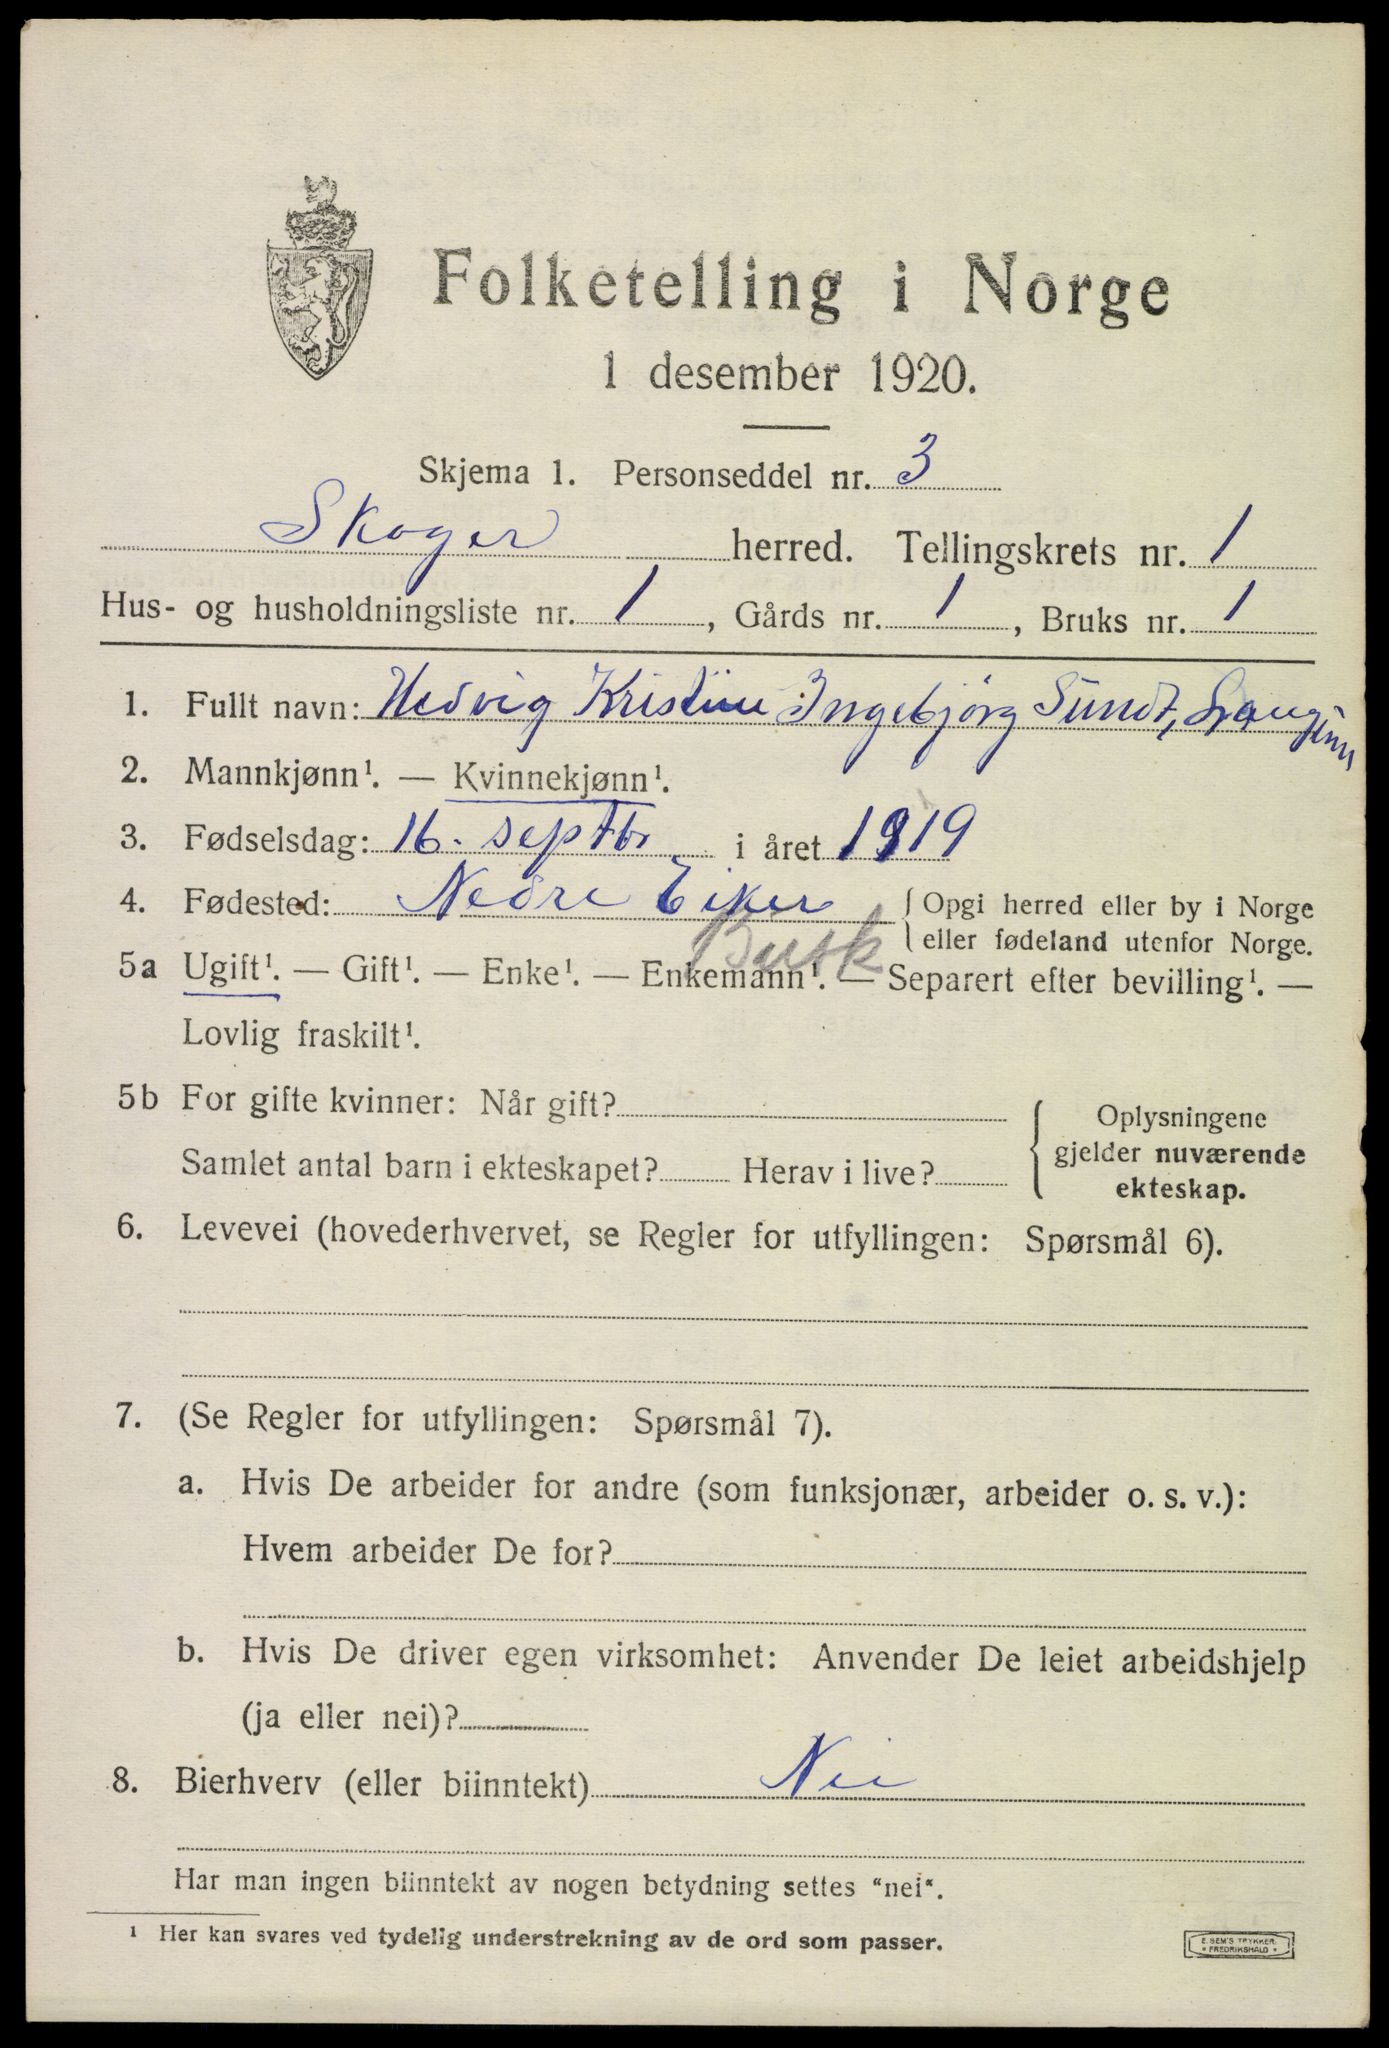 Folketelling i Norge
1 desember 1920.
Skjema 1. Personseddel nr. 3
Skoger herred. Tellingskrets nr. 1
Hus- og husholdningsliste nr. 1, Gårds nr. 1, Bruks nr. 1
1. Fullt navn: Hedvig Kristine Ingebjørg Sundt,
2. Mannkjønn¹. — Kvinnekjønn¹.
3. Fødselsdag: 16. septbr i året 1919
4. Fødested: Nedre Eiker { Opgi herred eller by i Norge
eller fødeland utenfor Norge.
Busk
5a Ugift¹. — Gift¹. — Enke¹. — Enkemann¹. — Separert efter bevilling¹. —
Lovlig fraskilt¹.
5b For gifte kvinner: Når gift?
Samlet antal barn i ekteskapet? Herav i live?
{ Oplysningene
gjelder nuværende
ekteskap.
6. Levevei (hovederhvervet, se Regler for utfyllingen: Spørsmål 6).
7. (Se Regler for utfyllingen: Spørsmål 7).
a. Hvis De arbeider for andre (som funksjonær, arbeider o. s. v.):
Hvem arbeider De for?
b. Hvis De driver egen virksomhet: Anvender De leiet arbeidshjelp
(ja eller nei)?
8. Bierhverv (eller biinntekt) Nei
Har man ingen biinntekt av nogen betydning settes "nei".
¹ Her kan svares ved tydelig understrekning av de ord som passer.
E. SEM'S TRYKKER.
• FREDRIKSHALD •